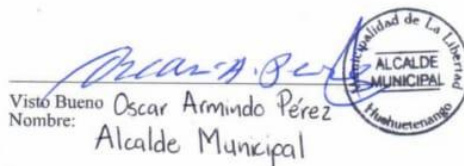 Oscar A. Per
Visto Bueno Oscar Armindo Pérez
Nombre:
Alcalde Municipal
Municipalidad de La Libertad
ALCALDE
MUNICIPAL
Huehuetenango